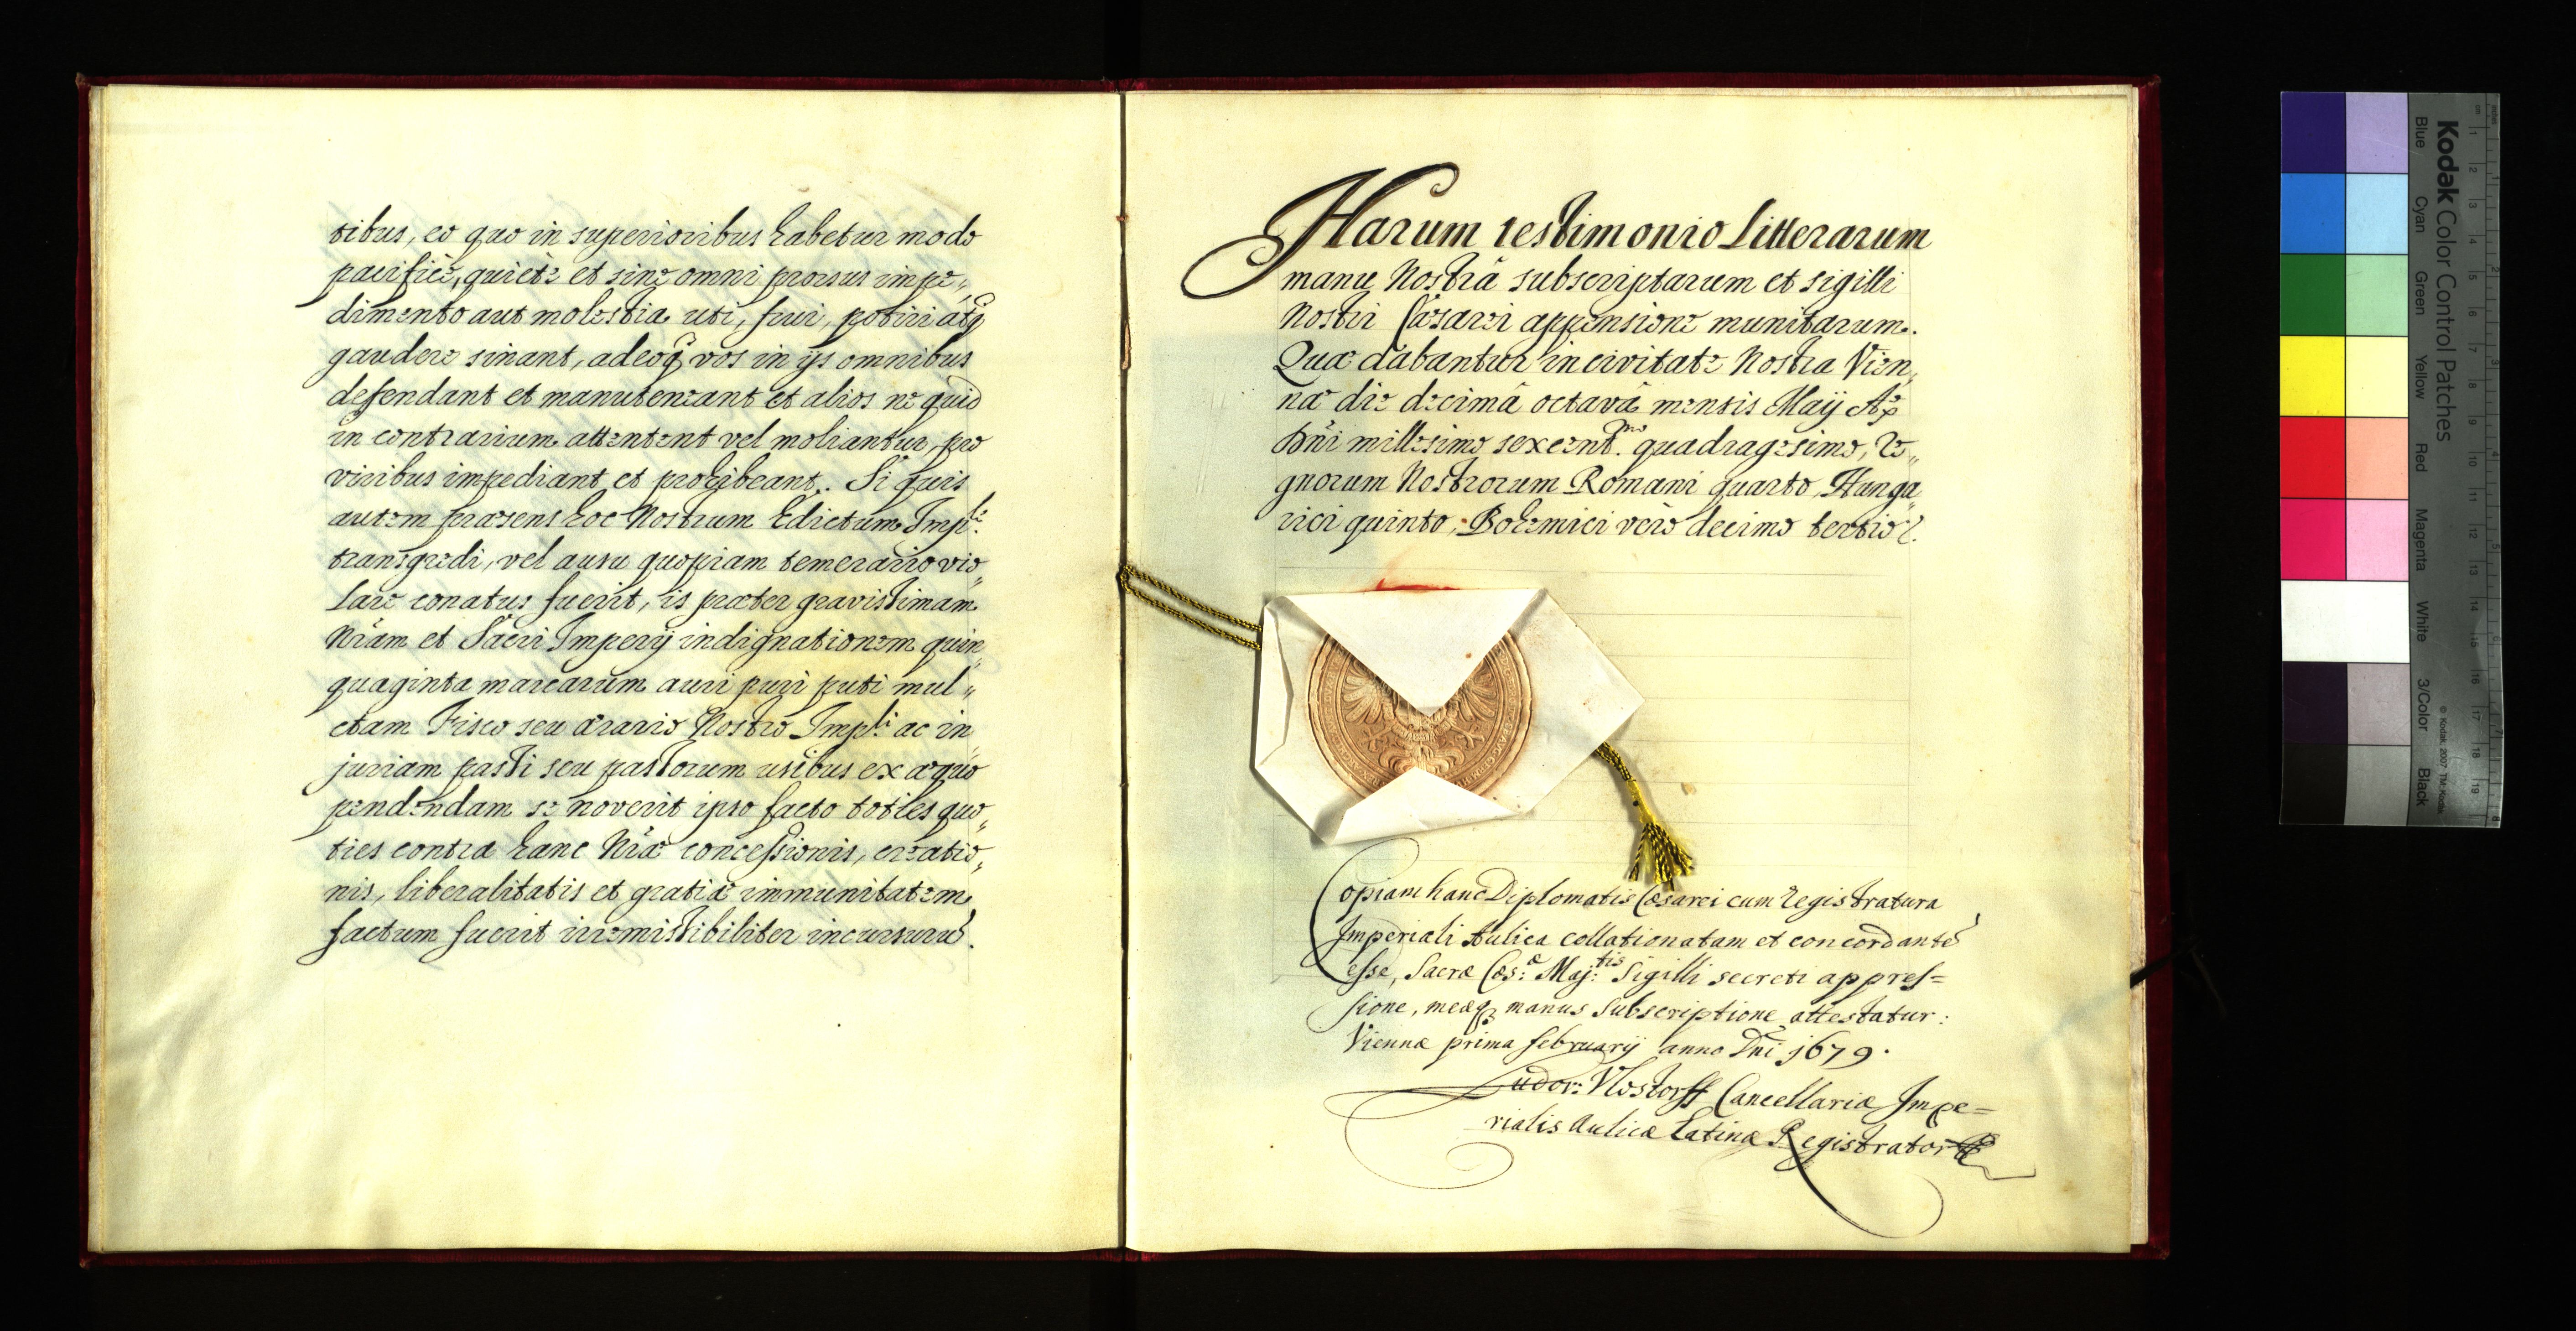 tibus, eo quo in superioribus habetur modo
pacificè, quietè et sine omni prorsus impe„
dimento aut molestia uti, frui, potiri atq
gaudere sinant, adeoq vos in ijs omnibus
defendant et manuteneant et alios ne quid
in contrarium attentent vel moliantur, pro
viribus impediant et prohibeant. Si quis
autem præsens hoc Nostrum Edictum Imple:
transgredi, vel ausu quopiam temerario vio„
lare conatus fuerit, is præter gravissimam
Nram et Sacri Imperij indignationem quin„
quaginta marcarum auri puri puti mul„
ctam Fisco seu ærario Nostro Impli: ac in„
juriam passi seu passorum usibus ex æquo
pendendam se noverit ipso facto toties quo„
ties contra hanc Nræ concessionis, creatio„
nis, liberalitatis et gratiæ immunitatem
factum fuerit irremissibiliter incursurū.
Harum testimonio Litterarum
manu Nostrâ subscriptarum et sigilli
Nostri Cæsarei appensione munitarum.
Quæ dabantur in civitate Nostra Vien„
næ die decimâ octavâ mensis Maij Ao
Dñi millesimo sexcentmo. quadragesimo, Re„
gnorum Nostrorum Romani quarto, Hunga„
rici quinto, Bohemici vero decimo tertio.
Copiam hanc Diplomatis Cæsarei cum Registratura
Imperiali Aulica collationatam et concordantē
esse, Sacræ Cæs:æ Maj:tis Sigilli secreti appres=
sione, meaq manus Subscriptione attestatur:
Viennæ prima februarij anno Dñi 1679.
Ludov: Vlostorff Cancellariæ Impe=
rialis Aulicæ Latinæ Registrator
Kodak Color Control Patches
© Kodak, 2007 TM: Kodak
Blue Cyan Green Yellow Red Magenta White 3/Color Black
1 2 3 4 5 6 7 8 9 10 11 12 13 14 15 16 17 18 19